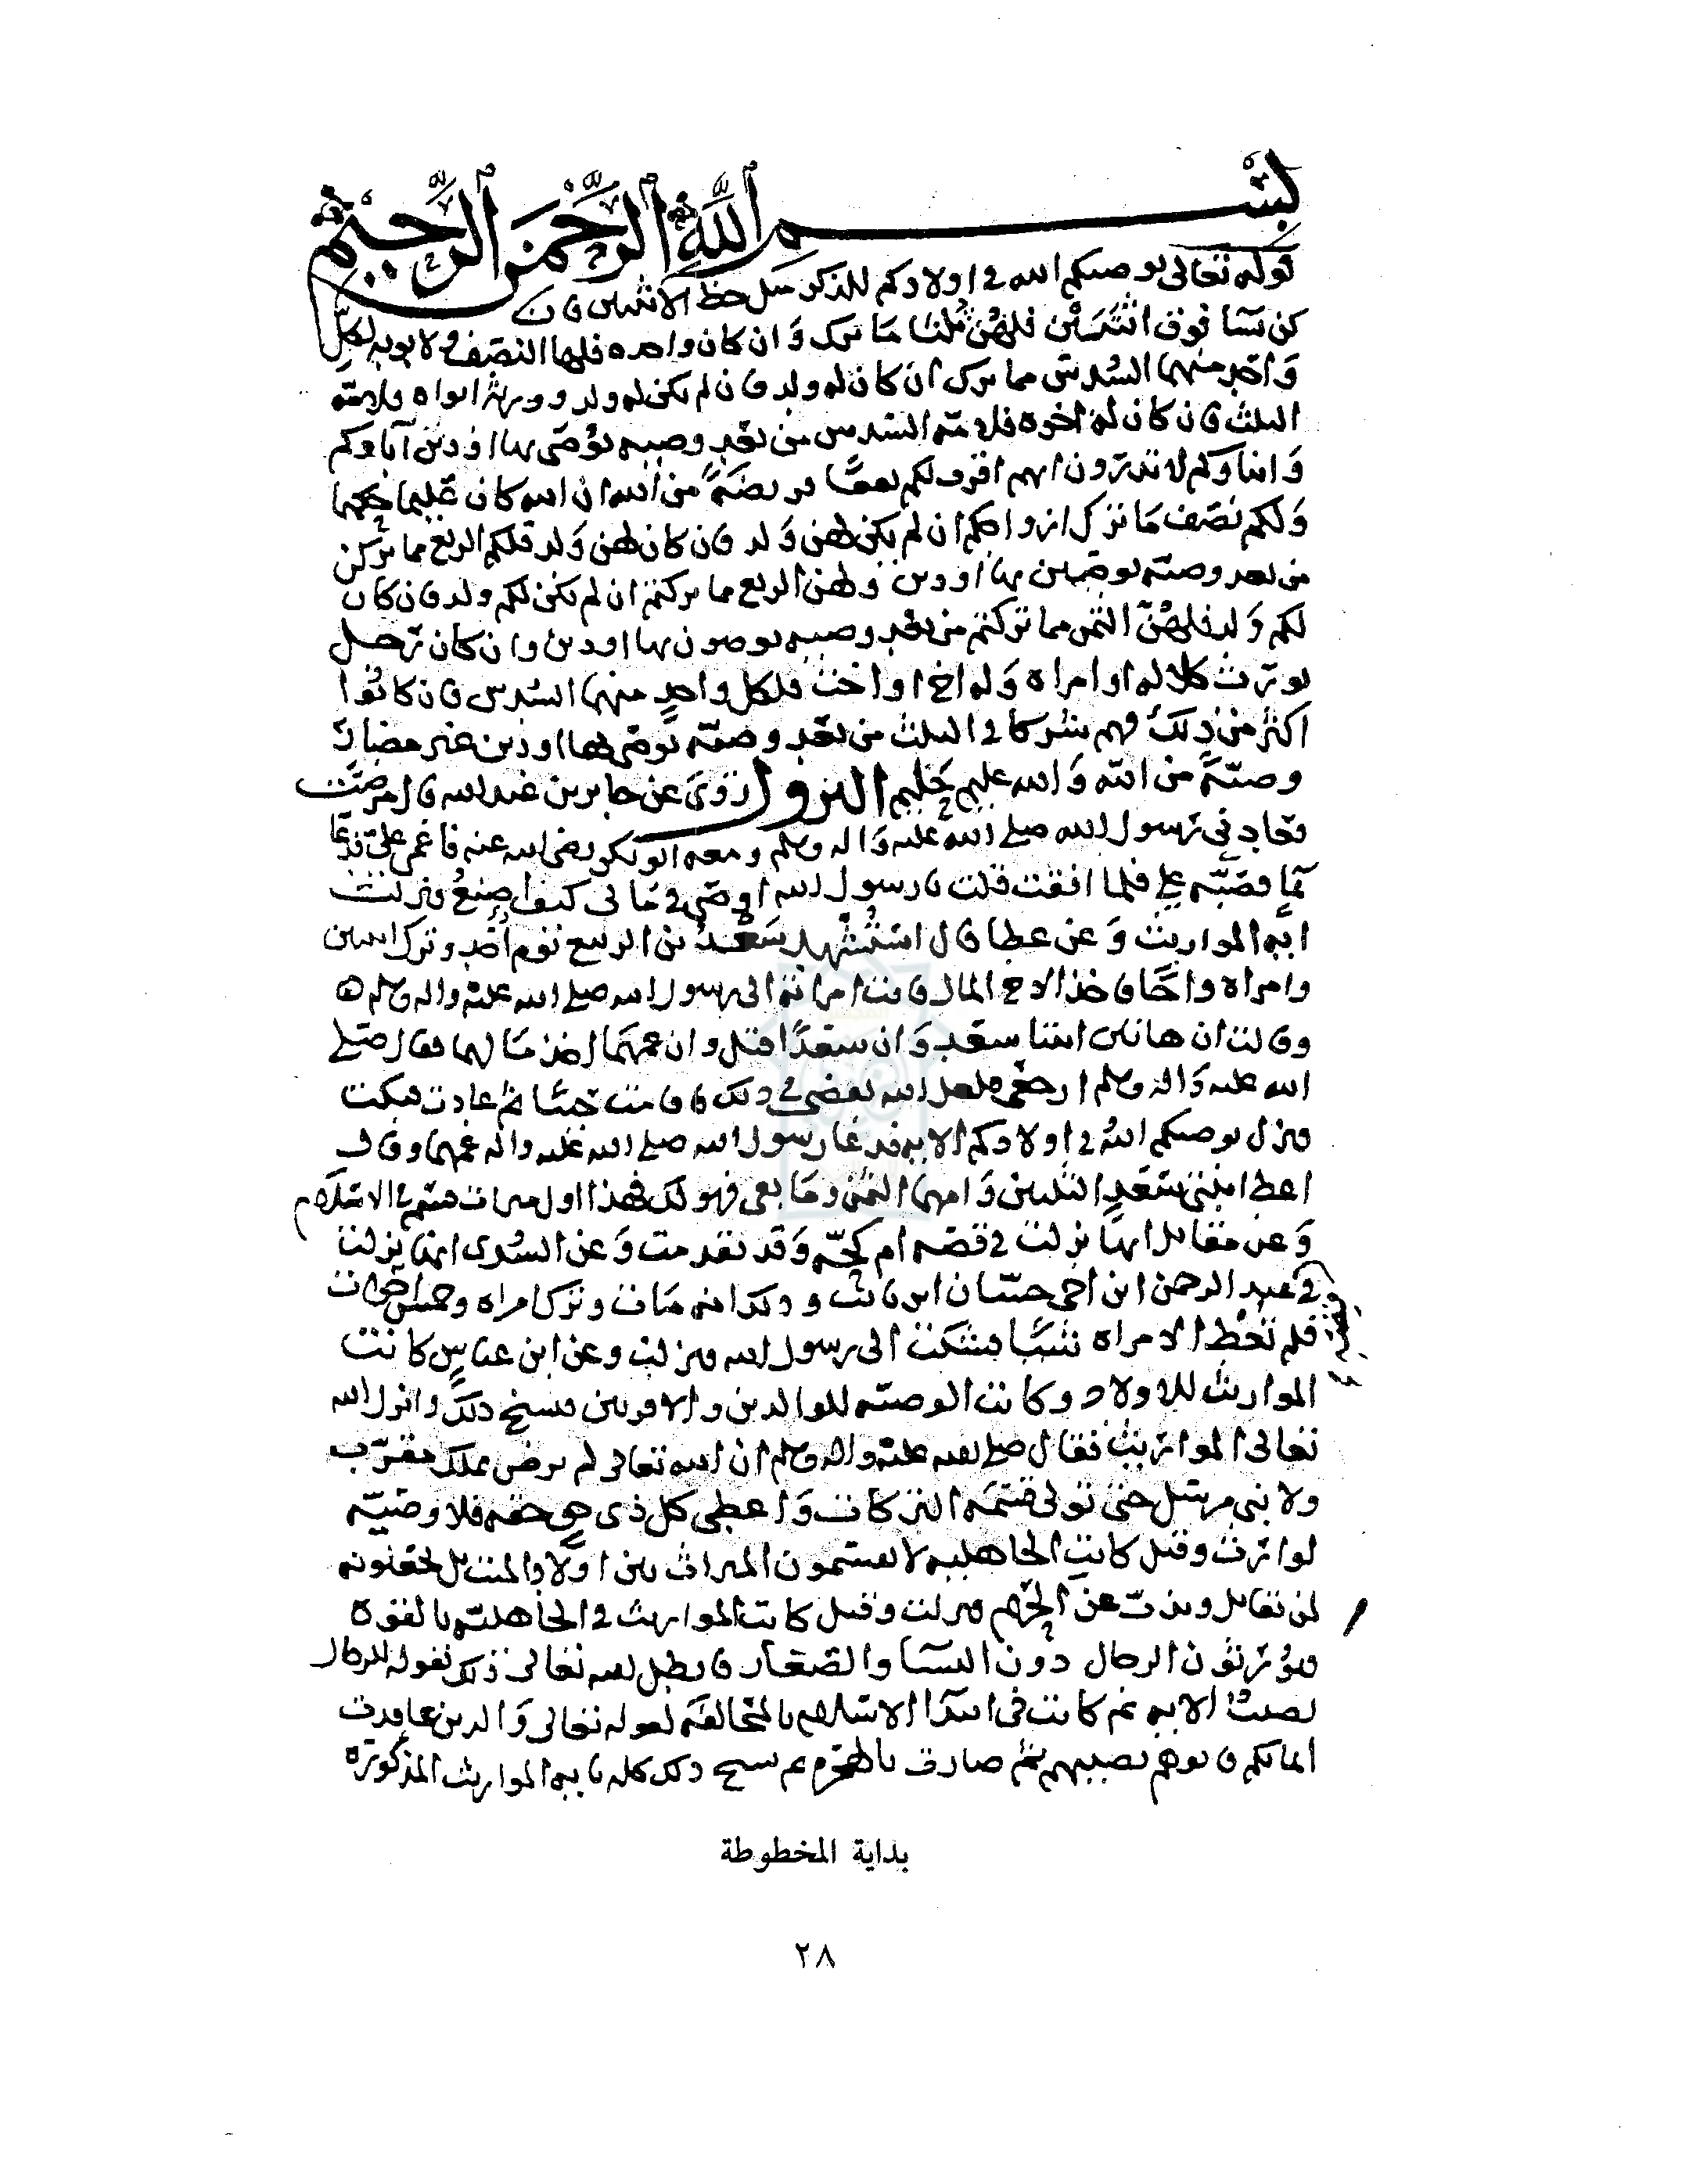 بِسْمِ اللَّهِ الرَّحْمَنِ الرَّحِيمِ
قوله تعالى يوصيكم الله في اولادكم للذكر مثل حظ الانثيين فان
كن نسا فوق اثنتين فلهن ثلثا ما ترك وان كان واحده فلها النصف ولابويه لكل
واحد منهما السدس مما ترك ان كان له ولد فان لم يكن له ولد وورثه ابواه فلامه
الثلث فان كان له اخوه فلامه السدس من بعد وصيه يوصى بها او دين آباوكم
وابناوكم لا تدرون ايهم اقرب لكم نفعا فريضة من الله ان الله كان عليما حكيما
ولكم نصف ما ترك ازواجكم ان لم يكن لهن ولد فان كان لهن ولد فلكم الربع مما تركن
من بعد وصيه يوصين بها او دين ولهن الربع مما تركتم ان لم يكن لكم ولد فان كان
لكم ولد فلهن الثمن مما تركتم من بعد وصيه توصون بها او دين وان كان رجل
يورث كلاله او امراه وله اخ او اخت فلكل واحد منهما السدس فان كانوا
اكثر من ذلك فهم شركا في الثلث من بعد وصيه يوصى بها او دين غير مضار
وصية من الله والله عليم حليم النزول روى عن جابر بن عبد الله قال مرضت
فعادني رسول الله صلى الله عليه واله وسلم ومعه ابو بكر رضى الله عنه فاغمى علي فدعا
بما فصبه علي فلما افقت قلت يا رسول الله اوصى في مالى كيف اصنع فنزلت
ايه المواريث وعن عطا قال استشهد سعد بن الربيع يوم احد وترك ابنتين
وامراه واخا فاخذ الاخ المال فاتت امراته الى رسول الله صلى الله عليه واله وسلم
وقالت ان هاتين ابنتا سعد وان سعدا قتل وان عمهما اخذ مالهما فقال صلى
الله عليه واله وسلم ارجعي فلعل الله يقضى في ذلك فاقامت حينا ثم عادت فبكت
فنزل يوصيكم الله في اولادكم الايه فدعا رسول الله صلى الله عليه واله عمهما وقال
اعط ابنتي سعد الثلثين وامهما الثمن وما بقى فهو لك فهذا اول ميراث قسم في الاسلام
وعن مقاتل انها نزلت في قصه ام كجه وقد تقدمت وعن السدى انها نزلت
في عبد الرحمن ابن اخى حسان ابن ثابت وذلك انه مات وترك امراه وخمس اخوات
فلم تعط الامراه شيئا فشكت الى رسول الله فنزلت وعن ابن عباس كانت
المواريث للاولاد وكانت الوصيه للوالدين والاقربين فنسخ ذلك وانزل الله
تعالى المواريث فقال صلى الله عليه واله وسلم ان الله تعالى لم يرض بملك مقرب
ولا نبي مرسل حتى تولى قسمه التركات واعطى كل ذى حق حقه فلا وصيه
لوارث وقيل كانت الجاهليه لا يقسمون الميراث بين اولاد الميت بل يجعلونه
لمن يقاتل ويذب عن الحريم فنزلت وقيل كانت المواريث في الجاهليه بالقوه
فيورثون الرجال دون النسا والصغار فابطل الله تعالى ذلك بقوله للرجال
نصيب الايه ثم كانت في ابتدا الاسلام بالمحالفه لقوله تعالى والذين عاقدت
ايمانكم فاتوهم نصيبهم ثم صارت بالهجره ثم نسخ ذلك كله بايه المواريث المذكوره
بداية المخطوطة
٢٨